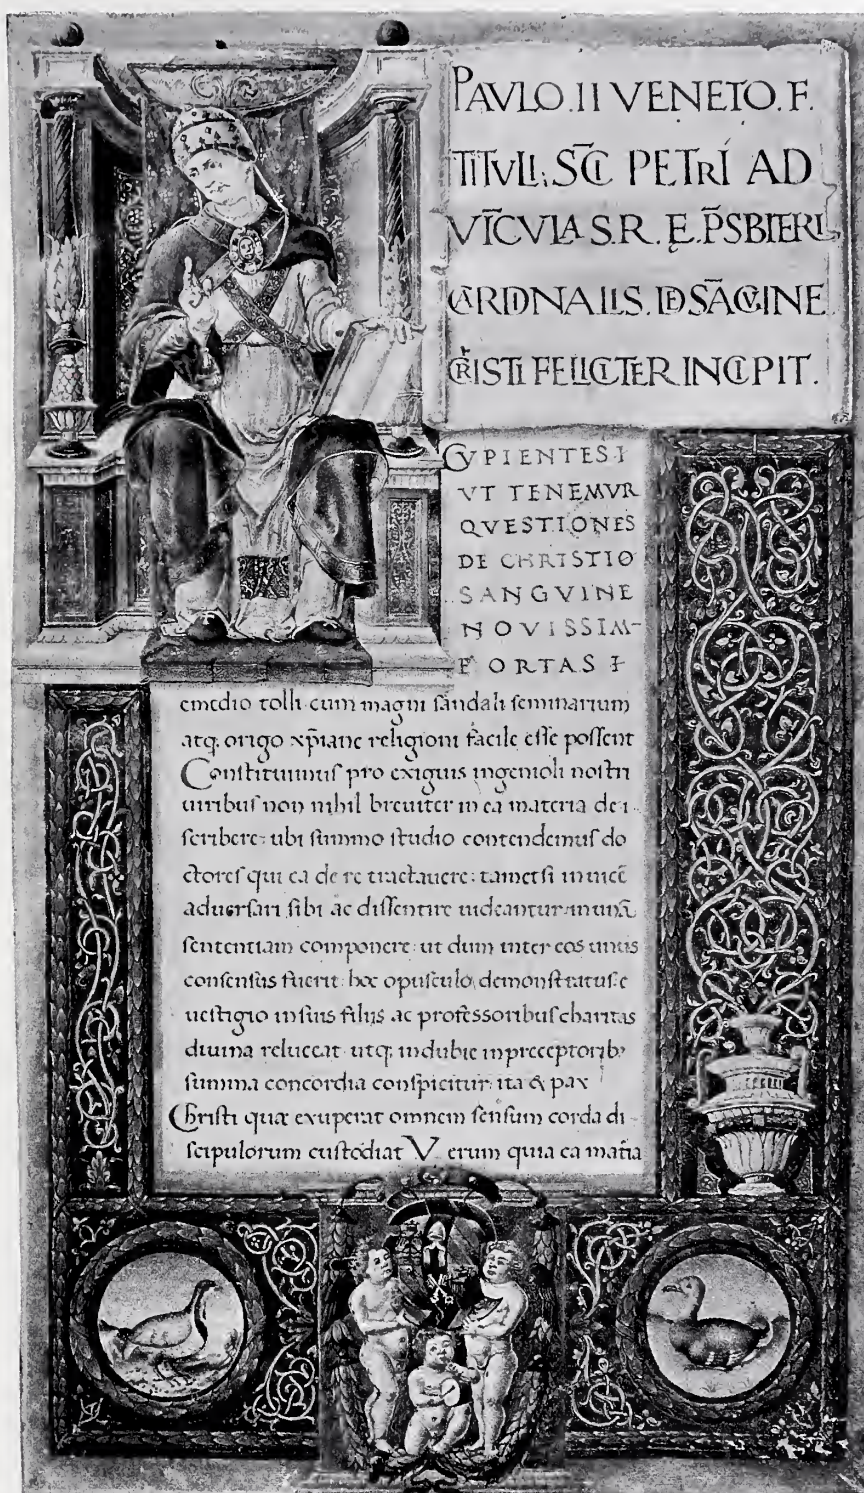 PAVLO . II VENETO . F .
TITVLI . SC̄I PETRI AD
VĪCVLA S . R . Ę . P̄SBITERI
CARDINALIS . DE SĀGVINE
CRISTI FELICITER INCIPIT .
CVPIENTES
VT TENEMVR
QVESTIONES
DE CHRISTIO
SANGVINE
NOVISSIM-
E ORTAS
emedio tolli cum magni sandali seminarium
atq. origo xp̄iane religioni facile esse possent
Constituimus pro exiguis ingenioli nostri
uiribus non nihil breuiter in ea materia de
scribere: ubi summo studio contendemus do
ctores qui ea de re tractauere: tametsi inuicē
aduersari sibi ac dissentire uideantur in unā
sententiam componere ut dum inter eos unus
consensus fuerit hoc opusculo demonstratus e
uestigio in suis filiis ac professoribus charitas
diuina reluceat utq. indubie in preceptorib'
summa concordia conspicitur ita & pax
Christi quæ exuperat omnem sensum corda di
scipulorum custodiat Verum quia ea materia